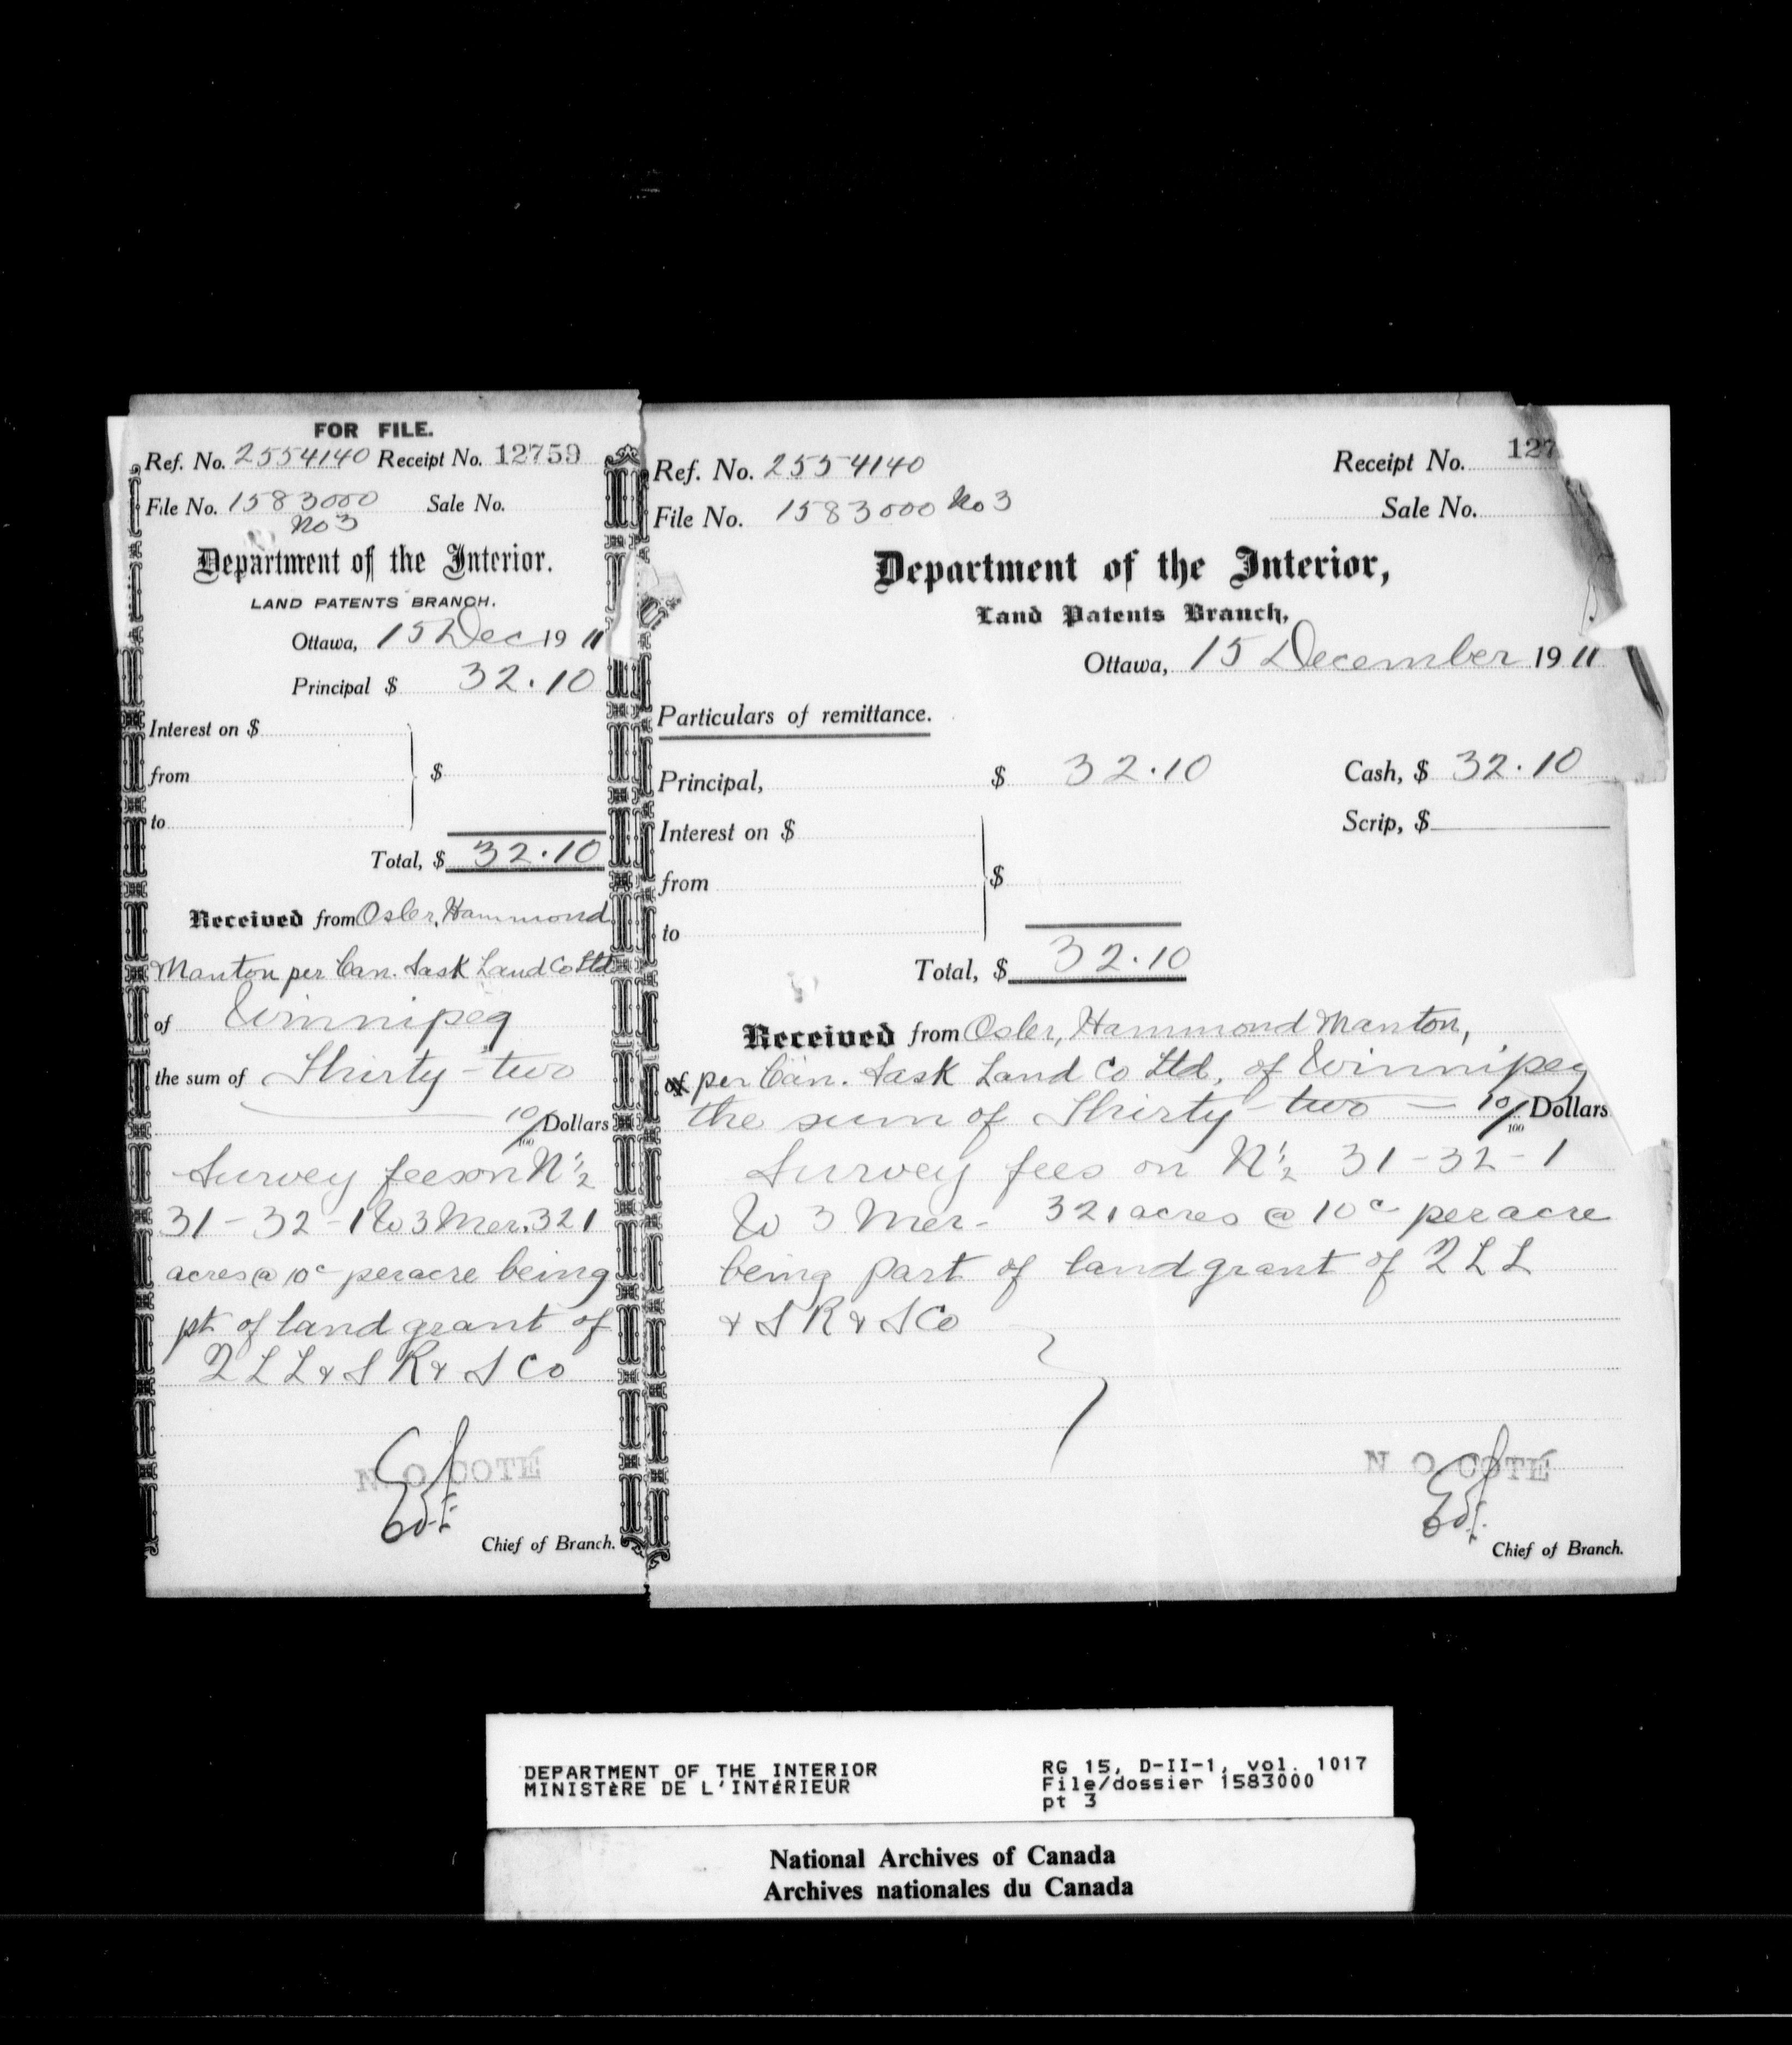 FOR FILE.
Ref. No. 2554140 Receipt No. 12759
File No. 1583000 Sale No.
No 3
Department of the Interior.
LAND PATENTS BRANCH.
Ottawa, 15 Dec 19 11
Principal $ 32.10
Interest on $
from $
to
Total, $ 32.10
Received from Osler, Hammond
Manton per Can. Sask Land Co Ltd
of Winnipeg
the sum of Thirty-two
10/100 Dollars
Survey fees on N 1/2
31-32-1 W 3 Mer. 321
acres @ 10c per acre being
pt of land grant of
Q L L & S R & S Co
N. O. COTÉ
Chief of Branch.
Ref. No. 2554140 Receipt No. 127
File No. 1583000 No 3 Sale No.
Department of the Interior,
Land Patents Branch,
Ottawa, 15 December 19 11
Particulars of remittance.
Principal, $ 32.10 Cash, $ 32.10
Interest on $ Scrip, $
from $
to
Total, $ 32.10
Received from Osler, Hammond Manton,
of per Can. Sask Land Co Ltd, of Winnipeg
the sum of Thirty-two — 10/100 Dollars
Survey fees on N 1/2 31-32-1
W 3 Mer- 321 acres @ 10c per acre
being part of land grant of Q L L
& S R & S Co
N O COTÉ
Chief of Branch.
DEPARTMENT OF THE INTERIOR
MINISTÈRE DE L'INTÉRIEUR
RG 15, D-II-1, vol. 1017
File/dossier 1583000
pt 3
National Archives of Canada
Archives nationales du Canada